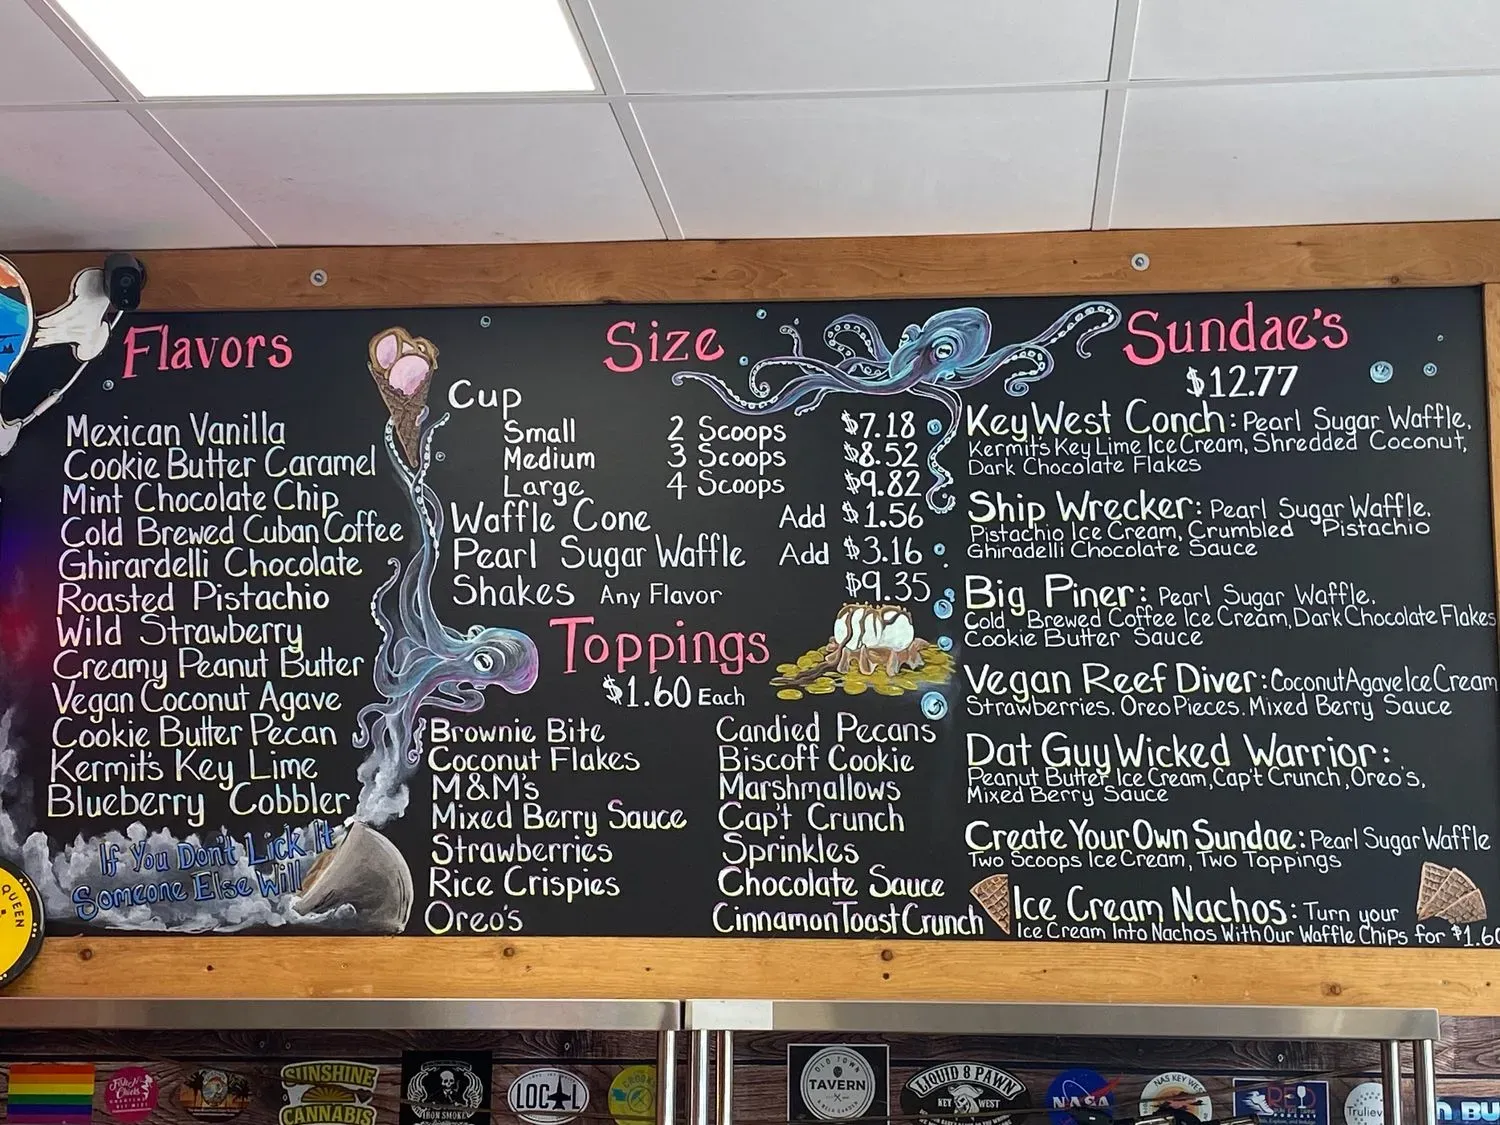 Flavors
Mexican Vanilla
Cookie Butter Caramel
Mint Chocolate Chip
Cold Brewed Cuban Coffee
Ghirardelli Chocolate
Roasted Pistachio
Wild Strawberry
Creamy Peanut Butter
Vegan Coconut Agave
Cookie Butter Pecan
Kermit's Key Lime
Blueberry Cobbler
If You Don't Lick It
Someone Else Will
Size
Cup
Small 2 Scoops $7.18
Medium 3 Scoops $8.52
Large 4 Scoops $9.82
Waffle Cone Add $1.56
Pearl Sugar Waffle Add $3.16
Shakes Any Flavor $9.35
Toppings
$1.60 Each
Brownie Bite
Coconut Flakes
M&M's
Mixed Berry Sauce
Strawberries
Rice Crispies
Oreo's
Candied Pecans
Biscoff Cookie
Marshmallows
Cap't Crunch
Sprinkles
Chocolate Sauce
Cinnamon Toast Crunch
Sundae's
$12.77
Key West Conch: Pearl Sugar Waffle,
Kermit's Key Lime Ice Cream, Shredded Coconut,
Dark Chocolate Flakes
Ship Wrecker: Pearl Sugar Waffle,
Pistachio Ice Cream, Crumbled Pistachio
Ghiradelli Chocolate Sauce
Big Piner: Pearl Sugar Waffle,
Cold Brewed Coffee Ice Cream, Dark Chocolate Flakes
Cookie Butter Sauce
Vegan Reef Diver: Coconut Agave Ice Cream
Strawberries. Oreo Pieces. Mixed Berry Sauce
Dat Guy Wicked Warrior:
Peanut Butter Ice Cream, Cap't Crunch, Oreo's,
Mixed Berry Sauce
Create Your Own Sundae: Pearl Sugar Waffle
Two Scoops Ice Cream, Two Toppings
Ice Cream Nachos: Turn your
Ice Cream Into Nachos With Our Waffle Chips for $1.60
QUEEN
SUNSHINE
CANNABIS
IRON SMOKE
LOCAL
OLD TOWN
TAVERN
LIQUID 8 PAWN
KEY WEST
NASA
NAS KEY WEST
Truliev